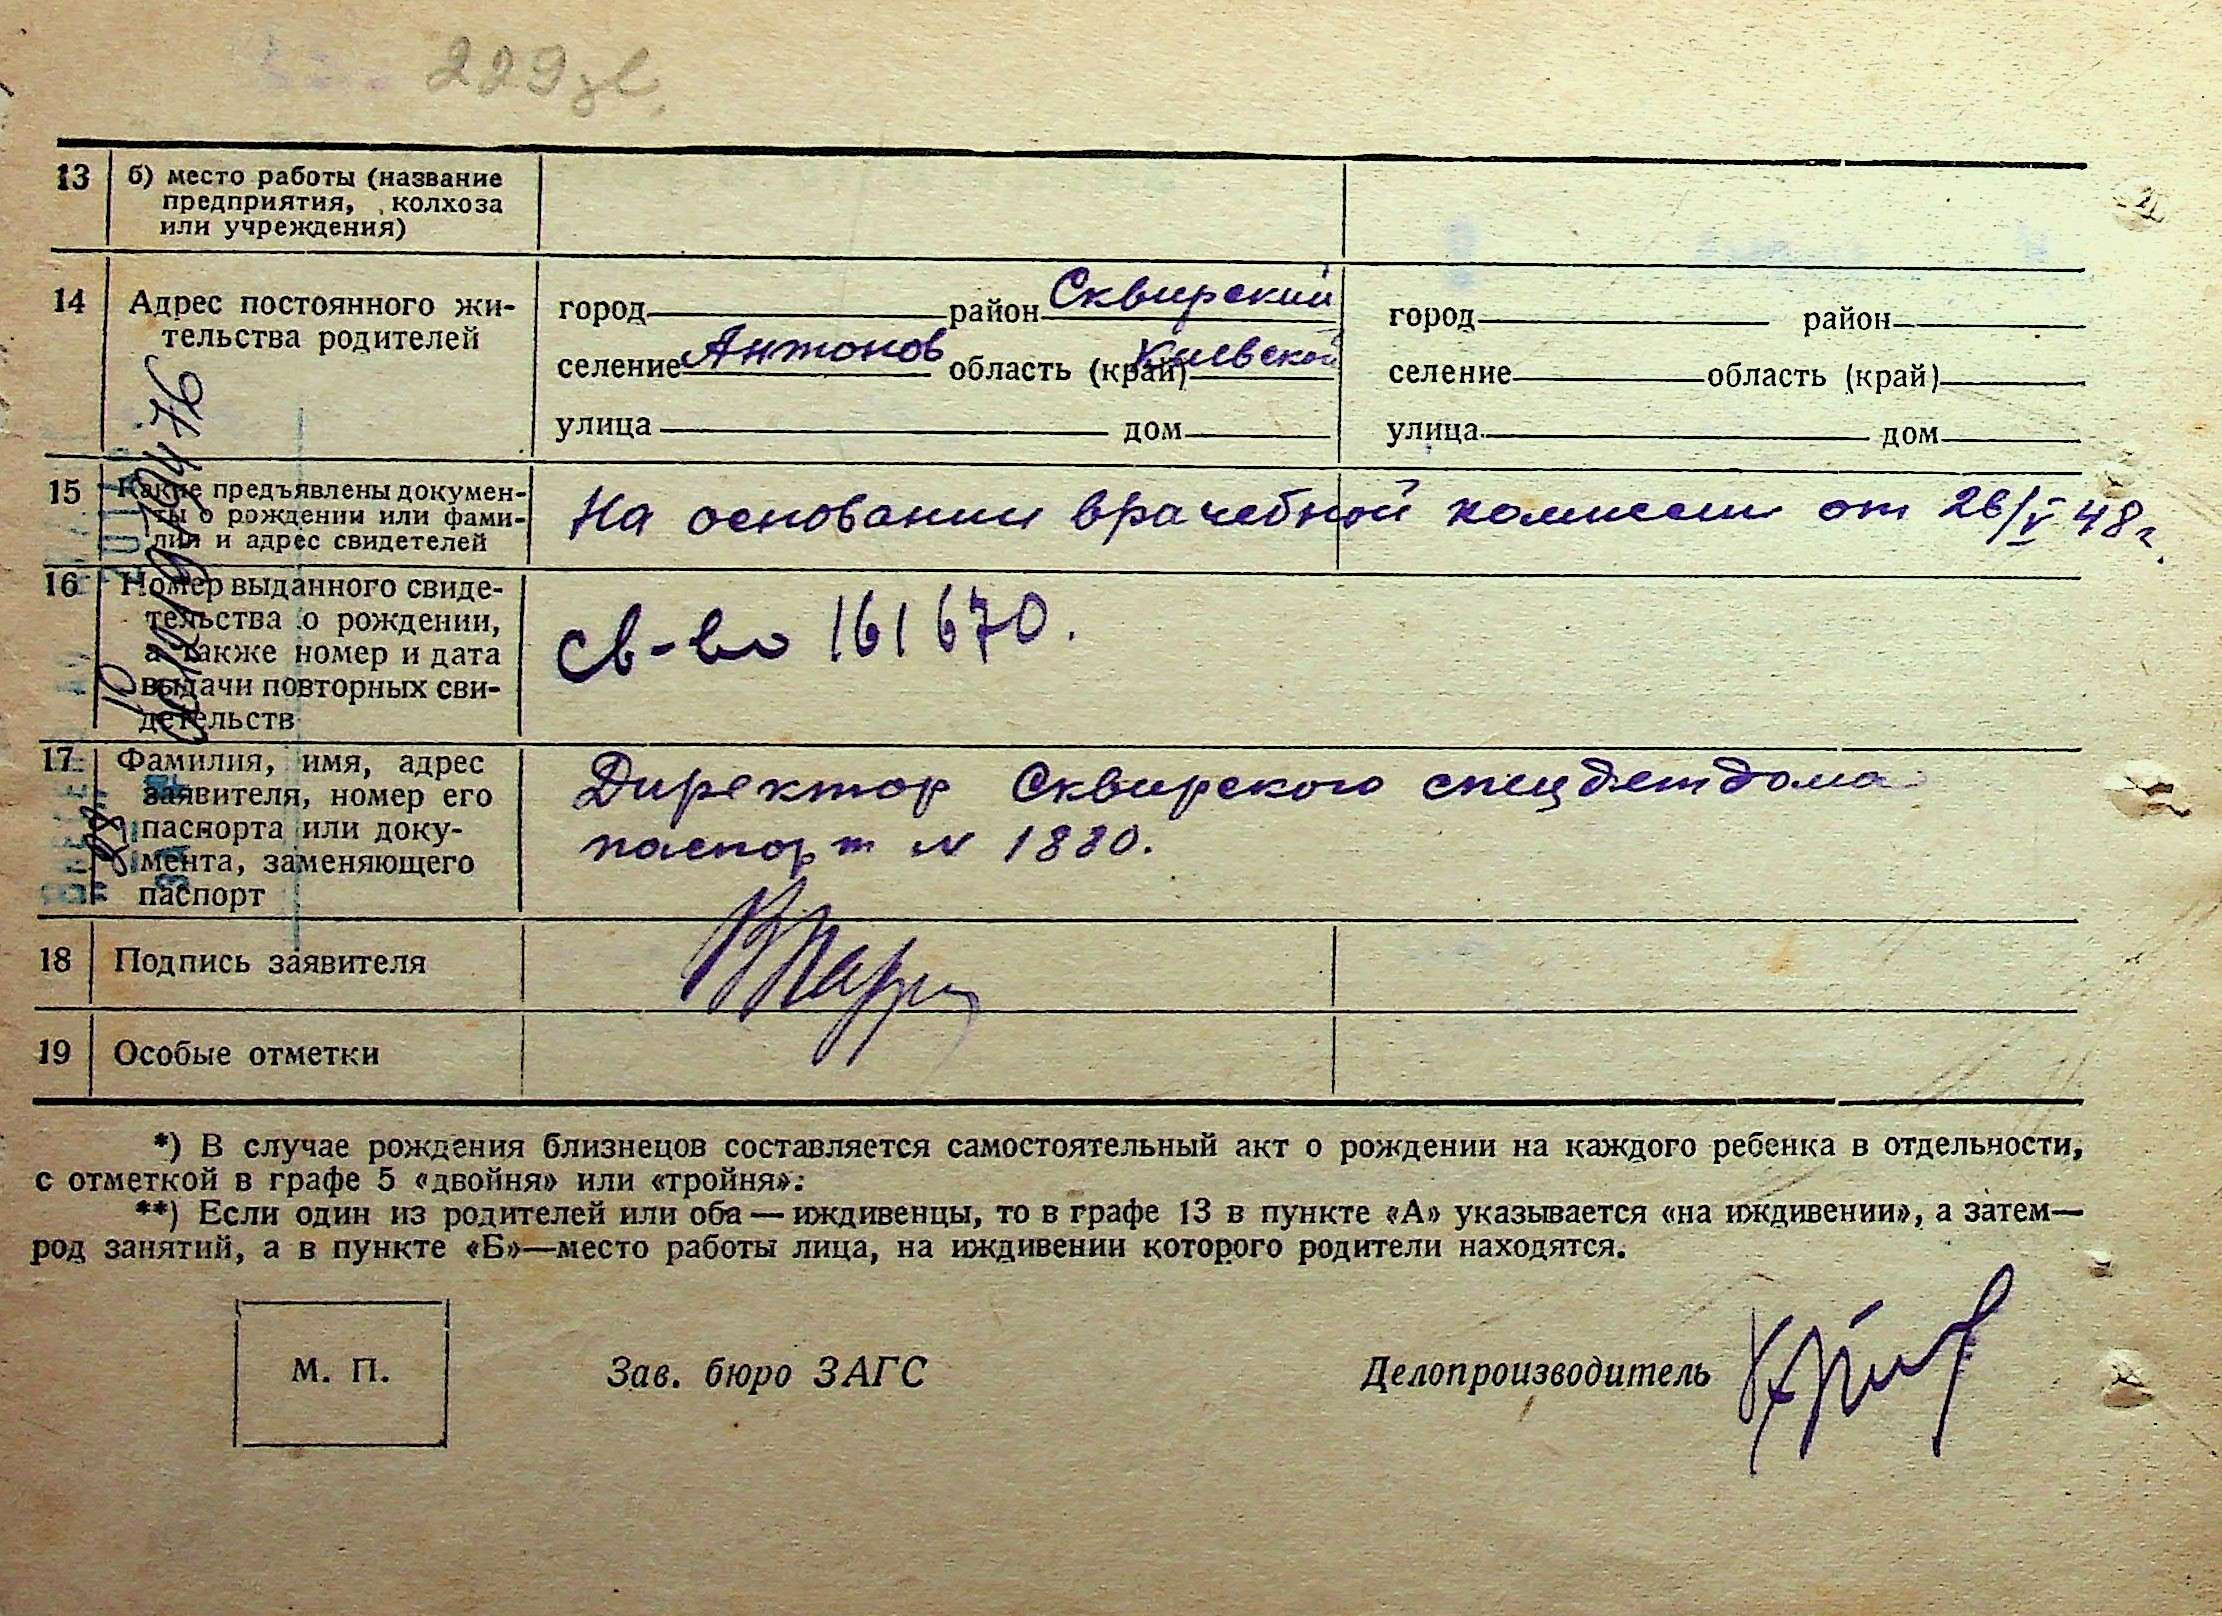 229
13 б) место работы (название
предприятия, колхоза
или учреждения)
14 Адрес постоянного жи-
тельства родителей
город район Сквирский
селение Антонов область (край) Киевской
улица дом
город район
селение область (край)
улица дом
15 Какие предъявлены докумен-
ты о рождении или фами-
лии и адрес свидетелей
На основании врачебной комиссии от 26/V 48 г.
16 Номер выданного свиде-
тельства о рождении,
а также номер и дата
выдачи повторных сви-
детельств
св-во 161670.
17 Фамилия, имя, адрес
заявителя, номер его
паспорта или доку-
мента, заменяющего
паспорт
Директор Сквирского спецдетдома
паспорт N 1880.
18 Подпись заявителя
19 Особые отметки
*) В случае рождения близнецов составляется самостоятельный акт о рождении на каждого ребенка в отдельности,
с отметкой в графе 5 «двойня» или «тройня»:
**) Если один из родителей или оба — иждивенцы, то в графе 13 в пункте «А» указывается «на иждивении», а затем—
род занятий, а в пункте «Б»—место работы лица, на иждивении которого родители находятся.
М. П. Зав. бюро ЗАГС Делопроизводитель